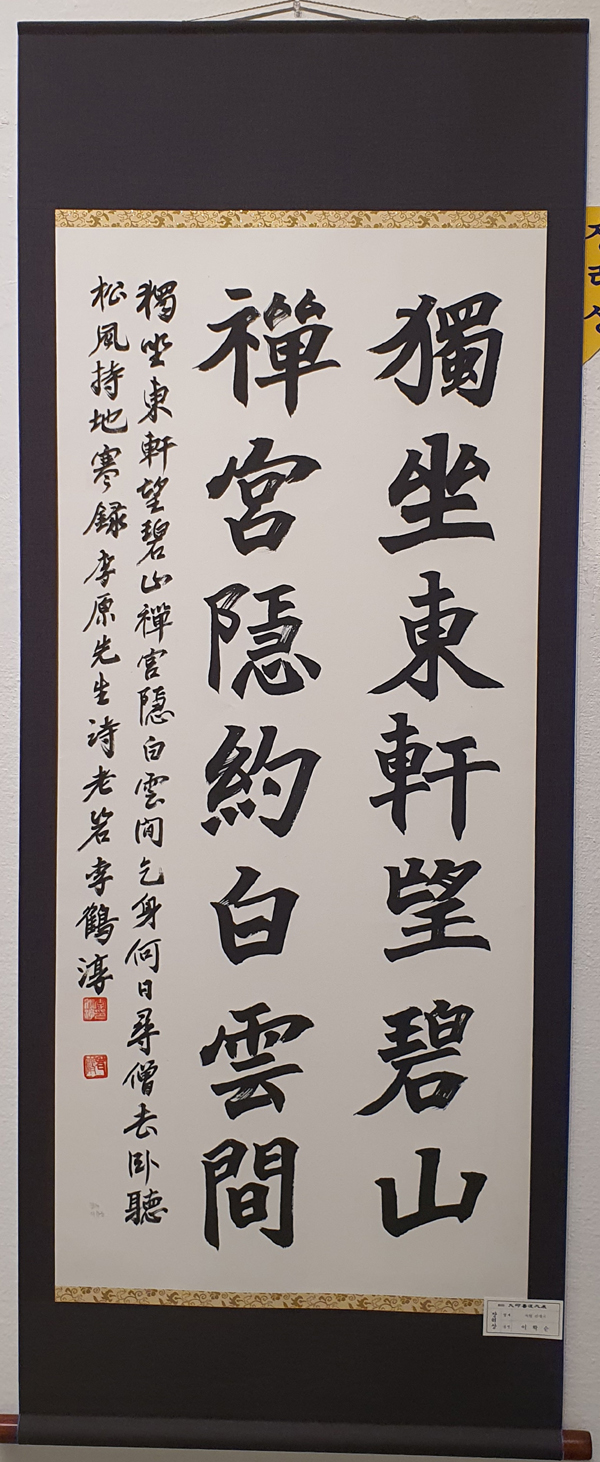 獨坐東軒望碧山
禪宮隱約白雲間
獨坐東軒望碧山禪宮隱白雲間乞身何日尋僧去卧聽
松風持地寒錄李原先生詩老岩李鶴淳
장려상